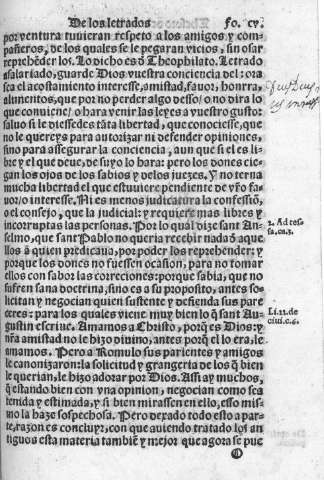 De los letrados Fo. cv.
por ventura tuvieran respeto a los amigos y com-
pañeros, de los quales se le pegaran vicios, sin osar
reprehẽder los. Lo dicho es ð Theophilato. Letrado
asalariado, guarde Dios vuestra conciencia del: ora
sea el acostamiento interesse, amistad, favor, honrra,
alimentos, que por no perder algo desso/ o no dira lo
que conviene/ o hara venir las leyes a vuestro gusto:
salvo si le diessedes tãta libertad, que conociesse, que
no le quereys para autorizar ni defender opiniones,
sino para assegurar la conciencia, aun que si el es li-
bre y el que deve, de suyo lo hara: pero los dones cie-
gan los ojos de los sabios y delos juezes. Y no terna
mucha libertad el que estuviere pendiente de vr̃o fa-
vor/o interesse. Ni es menos judicatura la confessiõ,
o el consejo, que la judicial: y requiere mas libres y
incorruptas las personas. Por lo qual dize sant An-
selmo, que sant Pablo no queria recebir nada ð aque
llos â quien predicava, por poder los reprehẽder: y
porque los dones no fuessen ocasion, para no tomar
ellos con sabor las correciones: porque sabia, que no
sufren sana doctrina, sino es a su proposito, antes so-
licitan y negocian quien sustente y defienda sus pare
ceres: para los quales viene muy bien lo q̃ sant Au-
gustin escrive. Amamos a Christo, porq̃ es Dios: y
nr̃a amistad no le hizo divino, antes porq̃ el lo era, le
amamos. Pero a Romulo sus parientes y amigos
le canonizaron: la solicitud y grangeria de los q̃ bien
le querian, le hizo adorar por Dios. Assi ay muchos,
q̃ estando bien con vna opinion, negocian como sea
tenida y estimada, y si bien mirassen en ello, esso mis-
mo la haze sospechosa. Pero dexado todo esto a par-
te, razon es concluyr, con que aviendo tratado los an
tiguos esta materia tambiẽ y mejor que agora se pue
2. Ad tes-
sa. ca. 3.
Li. 22. de
civi. c. 6.